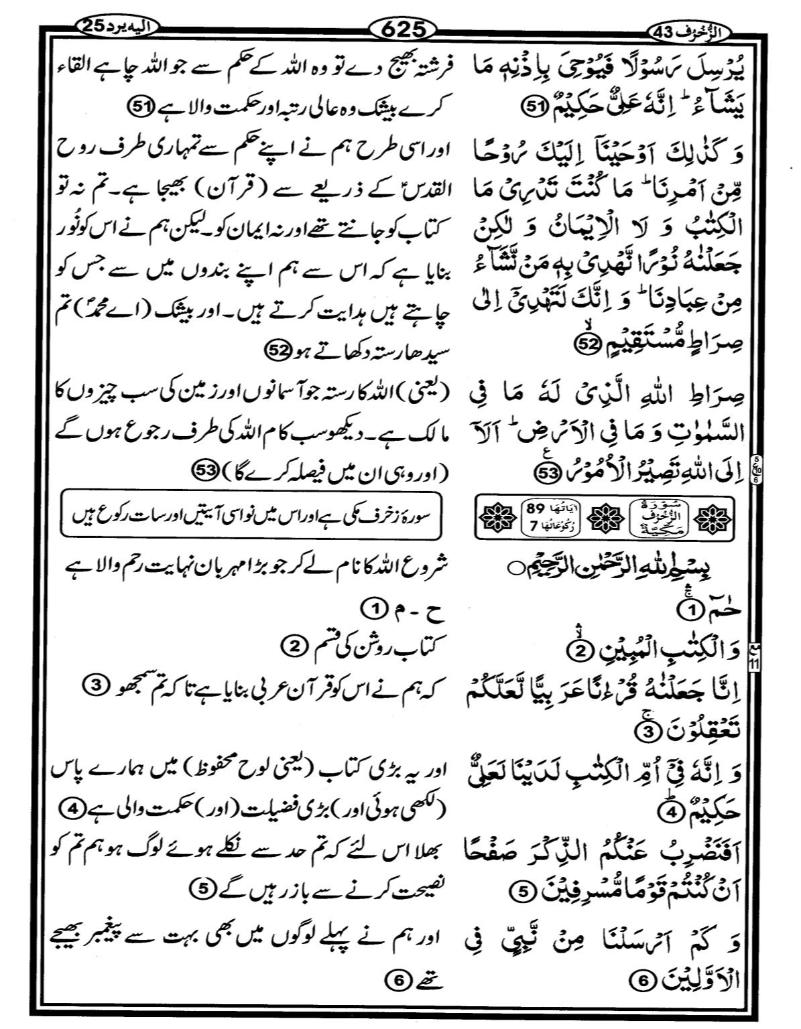 الزُّخْرُف 43
625
الیہ یرد 25
يُرْسِلَ رَسُوْلًا فَيُوْحِيَ بِاِذْنِهٖ مَا
يَشَآءُ ؕ اِنَّهٗ عَلِيٌّ حَكِيْمٌ 51
وَ كَذٰلِكَ اَوْحَيْنَاۤ اِلَيْكَ رُوْحًا
مِّنْ اَمْرِنَا ؕ مَا كُنْتَ تَدْرِيْ مَا
الْكِتٰبُ وَ لَا الْاِيْمَانُ وَ لٰكِنْ
جَعَلْنٰهُ نُوْرًا نَّهْدِيْ بِهٖ مَنْ نَّشَآءُ
مِنْ عِبَادِنَا ؕ وَ اِنَّكَ لَتَهْدِيْۤ اِلٰى
صِرَاطٍ مُّسْتَقِيْمٍ ۙ 52
صِرَاطِ اللّٰهِ الَّذِيْ لَهٗ مَا فِي
السَّمٰوٰتِ وَ مَا فِي الْاَرْضِ ؕ اَلَاۤ
اِلَى اللّٰهِ تَصِيْرُ الْاُمُوْرُ 53
سُوْرَةُ الزُّخْرُفِ مَكِّيَّةٌ
اٰيَاتُهَا 89
رُكُوْعَاتُهَا 7
بِسْمِ اللّٰهِ الرَّحْمٰنِ الرَّحِيْمِ ○
حٰمٓ ۚ 1
وَ الْكِتٰبِ الْمُبِيْنِ ۙ 2
اِنَّا جَعَلْنٰهُ قُرْءٰنًا عَرَبِيًّا لَّعَلَّكُمْ
تَعْقِلُوْنَ ۚ 3
وَ اِنَّهٗ فِيْۤ اُمِّ الْكِتٰبِ لَدَيْنَا لَعَلِيٌّ
حَكِيْمٌ ؕ 4
اَفَنَضْرِبُ عَنْكُمُ الذِّكْرَ صَفْحًا
اَنْ كُنْتُمْ قَوْمًا مُّسْرِفِيْنَ 5
وَ كَمْ اَرْسَلْنَا مِنْ نَّبِيٍّ فِي
الْاَوَّلِيْنَ 6
فرشتہ بھیج دے تو وہ اللہ کے حکم سے جو اللہ چاہے القاء
کرے بیشک وہ عالی رتبہ اور حکمت والا ہے 51
اور اسی طرح ہم نے اپنے حکم سے تمہاری طرف روح
القدسؑ کے ذریعے سے (قرآن) بھیجا ہے۔ تم نہ تو
کتاب کو جانتے تھے اور نہ ایمان کو۔ لیکن ہم نے اس کو نُور
بنایا ہے کہ اس سے ہم اپنے بندوں میں سے جس کو
چاہتے ہیں ہدایت کرتے ہیں۔ اور بیشک (اے محمدؐ) تم
سیدھا رستہ دکھاتے ہو 52
(یعنی) اللہ کا رستہ جو آسمانوں اور زمین کی سب چیزوں کا
مالک ہے۔ دیکھو سب کام اللہ کی طرف رجوع ہوں گے
(اور وہی ان میں فیصلہ کرے گا) 53
سورۂ زخرف مکی ہے اور اس میں نواسی آیتیں اور سات رکوع ہیں
شروع اللہ کا نام لے کر جو بڑا مہربان نہایت رحم والا ہے
ح - م 1
کتاب روشن کی قسم 2
کہ ہم نے اس کو قرآن عربی بنایا ہے تاکہ تم سمجھو 3
اور یہ بڑی کتاب (یعنی لوح محفوظ) میں ہمارے پاس
(لکھی ہوئی اور) بڑی فضیلت (اور) حکمت والی ہے 4
بھلا اس لئے کہ تم حد سے نکلے ہوئے لوگ ہو ہم تم کو
نصیحت کرنے سے باز رہیں گے 5
اور ہم نے پہلے لوگوں میں بھی بہت سے پیغمبر بھیجے
تھے 6
مع 11